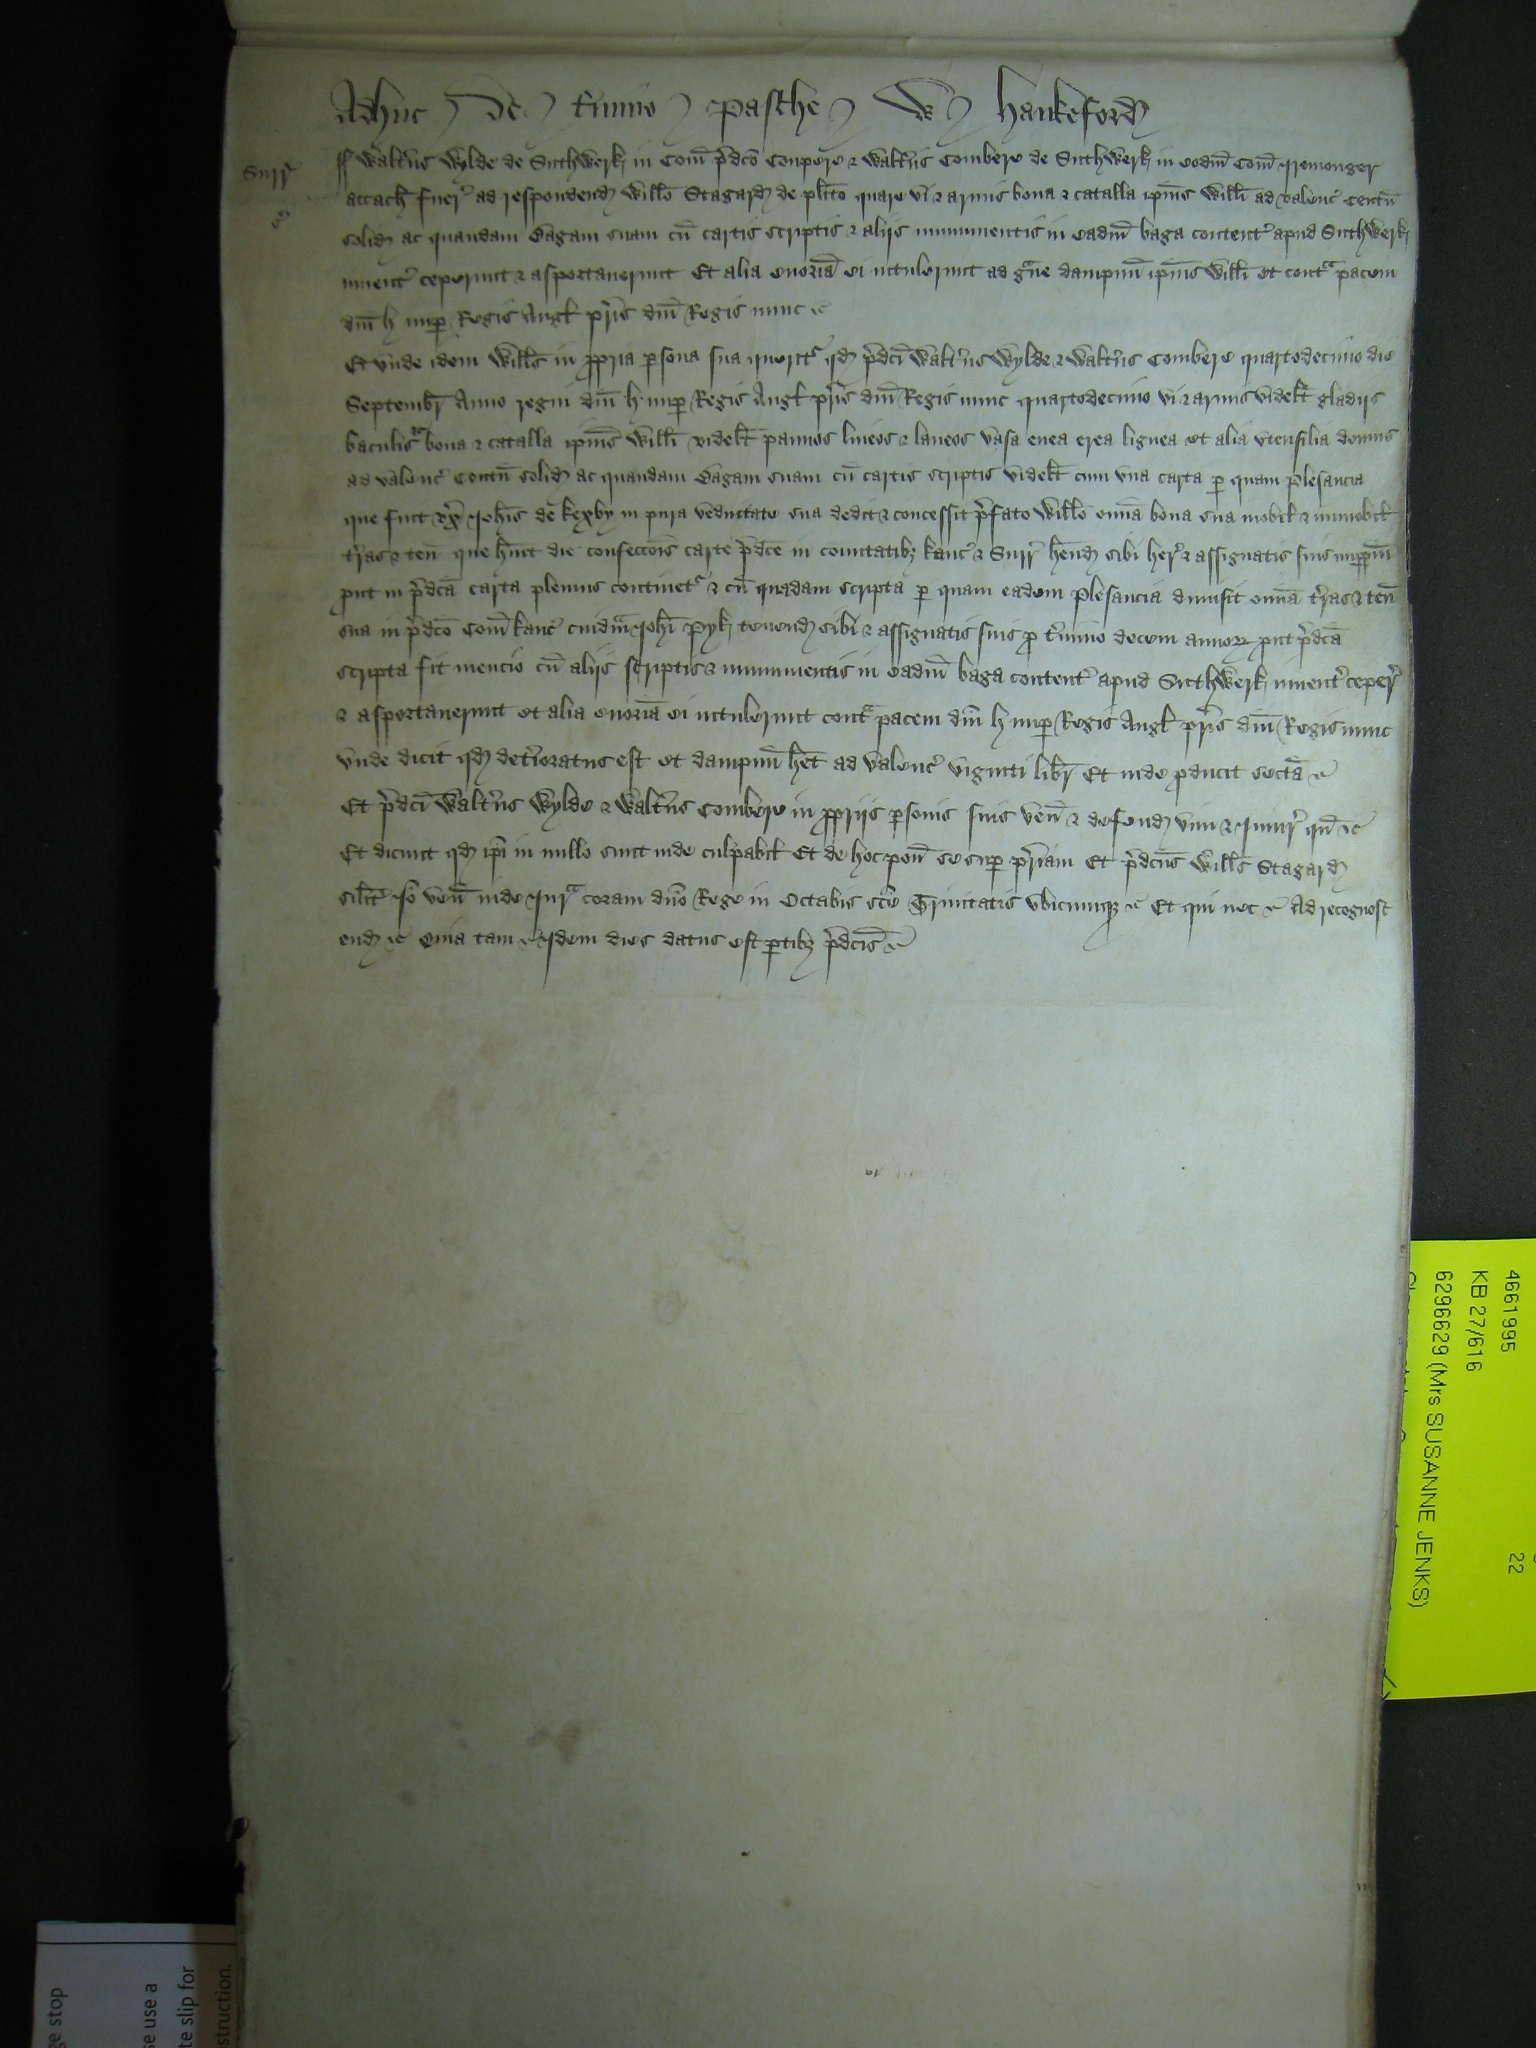 Adhuc de Termino Pasche W Hankeford
Surr̃ ss Walt̃us Wylde de Suthwerk in Com̃ p̃dc̃o Coupere & Walt̃us Combere de Suthwerk in eodm̃ Com̃ Iremonger
attach̃ fuer̃ ad respondend̃ Will̃o Stagard̃ de pl̃ito quare vi & armis bona & catalla ip̃ius Will̃i ad valenc̃ Centũ
solid̃ ac quandam Bagam suam cũ cartis scriptis & aliis munimentis in eadm̃ baga content̃ apud Suthwerk
invent̃ ceperunt & asportaverunt Et alia enormĩa ei intulerunt ad g̃ve dampnũ ip̃ius Will̃i et cont̃ pacem
dñi H nup̱ Regis Angl̃ pr̃is dñi Regis nunc &c̃
Et unde idem Will̃s in p̱pria p̱sona sua querit̃ qd̃ p̃dc̃i Walt̃us Wylde & Walt̃us Combere quartodecimo die
Septembr̃ Anno regni dñi H nup̱ Regis Angl̃ pr̃is dñi Regis nunc quartodecimo vi & armis videlt̃ gladiis
baculis &c̃ bona & catalla ip̃ius Will̃i videlt̃ pannos lineos & laneos vasa enea erea lignea et alia utensilia domus
ad valenc̃ Centũ solid̃ ac quandam Bagam suam cũ cartis scriptis videlt̃ cum una carta p̱ quam Plesancia
que fuit ux̃ Joh̃is de Kexby in pura viduitate sua dedit & concessit p̃fato Will̃o om̃ia bona sua mobil̃ & immobil̃
t̃ras & teñ que h̃uit die confecc̃ois carte p̃dc̃e in comitatibȝ Kanc̃ & Surr̃ h̃end̃ sibi her̃ & assignatis suis imp̱pm̃
put in p̃dc̃a carta plenius continet̃ & cũ quadam scripta p̱ quam eadem Plesancia dimisit om̃ia t̃ras & teñ
sua in p̃dc̃o Com̃ Kanc̃ cuidm̃ Joh̃i Pyk tenend̃ sibi & assignatis suis p̱ t̃mino decem annoꝝ put p̃dc̃a
scripta fit mencio cũ aliis scriptis & munimentis in eadm̃ baga content̃ apud Suthwerk invent̃ ceper̃
& asportaverunt et alia enormĩa ei intulerunt cont̃ pacem dñi H nup̱ Regis Angl̃ pr̃is dñi Regis nunc
unde dicit qd̃ det̃ioratus est et dampnũ h̃et ad valenc̃ viginti libr̃ Et inde p̱ducit sectã &c̃
Et p̃dc̃i Walt̃us Wylde & Walt̃us Combere in p̱priis p̱sonis suis veñ & defend̃ vim & iniur̃ qñ &c̃
Et dicunt qd̃ ip̃i in nullo sunt inde culpabil̃ Et de hoc poñ se sup̱ pr̃iam Et p̃dc̃us Will̃s Stagard̃
silĩt Io veñ inde Iur̃ coram dño Rege in Octabis sc̃e Trinitatis ubicumqȝ &c̃ Et qui nec &c̃ Ad recognosc
end̃ &c̃ Quia tam &c̃ Idem dies datus est p̱tibȝ p̃dc̃is &c̃
4661995
KB 27/616
6296629 (Mrs SUSANNE JENKS)
22
ge stop
se use a
te slip for
struction.